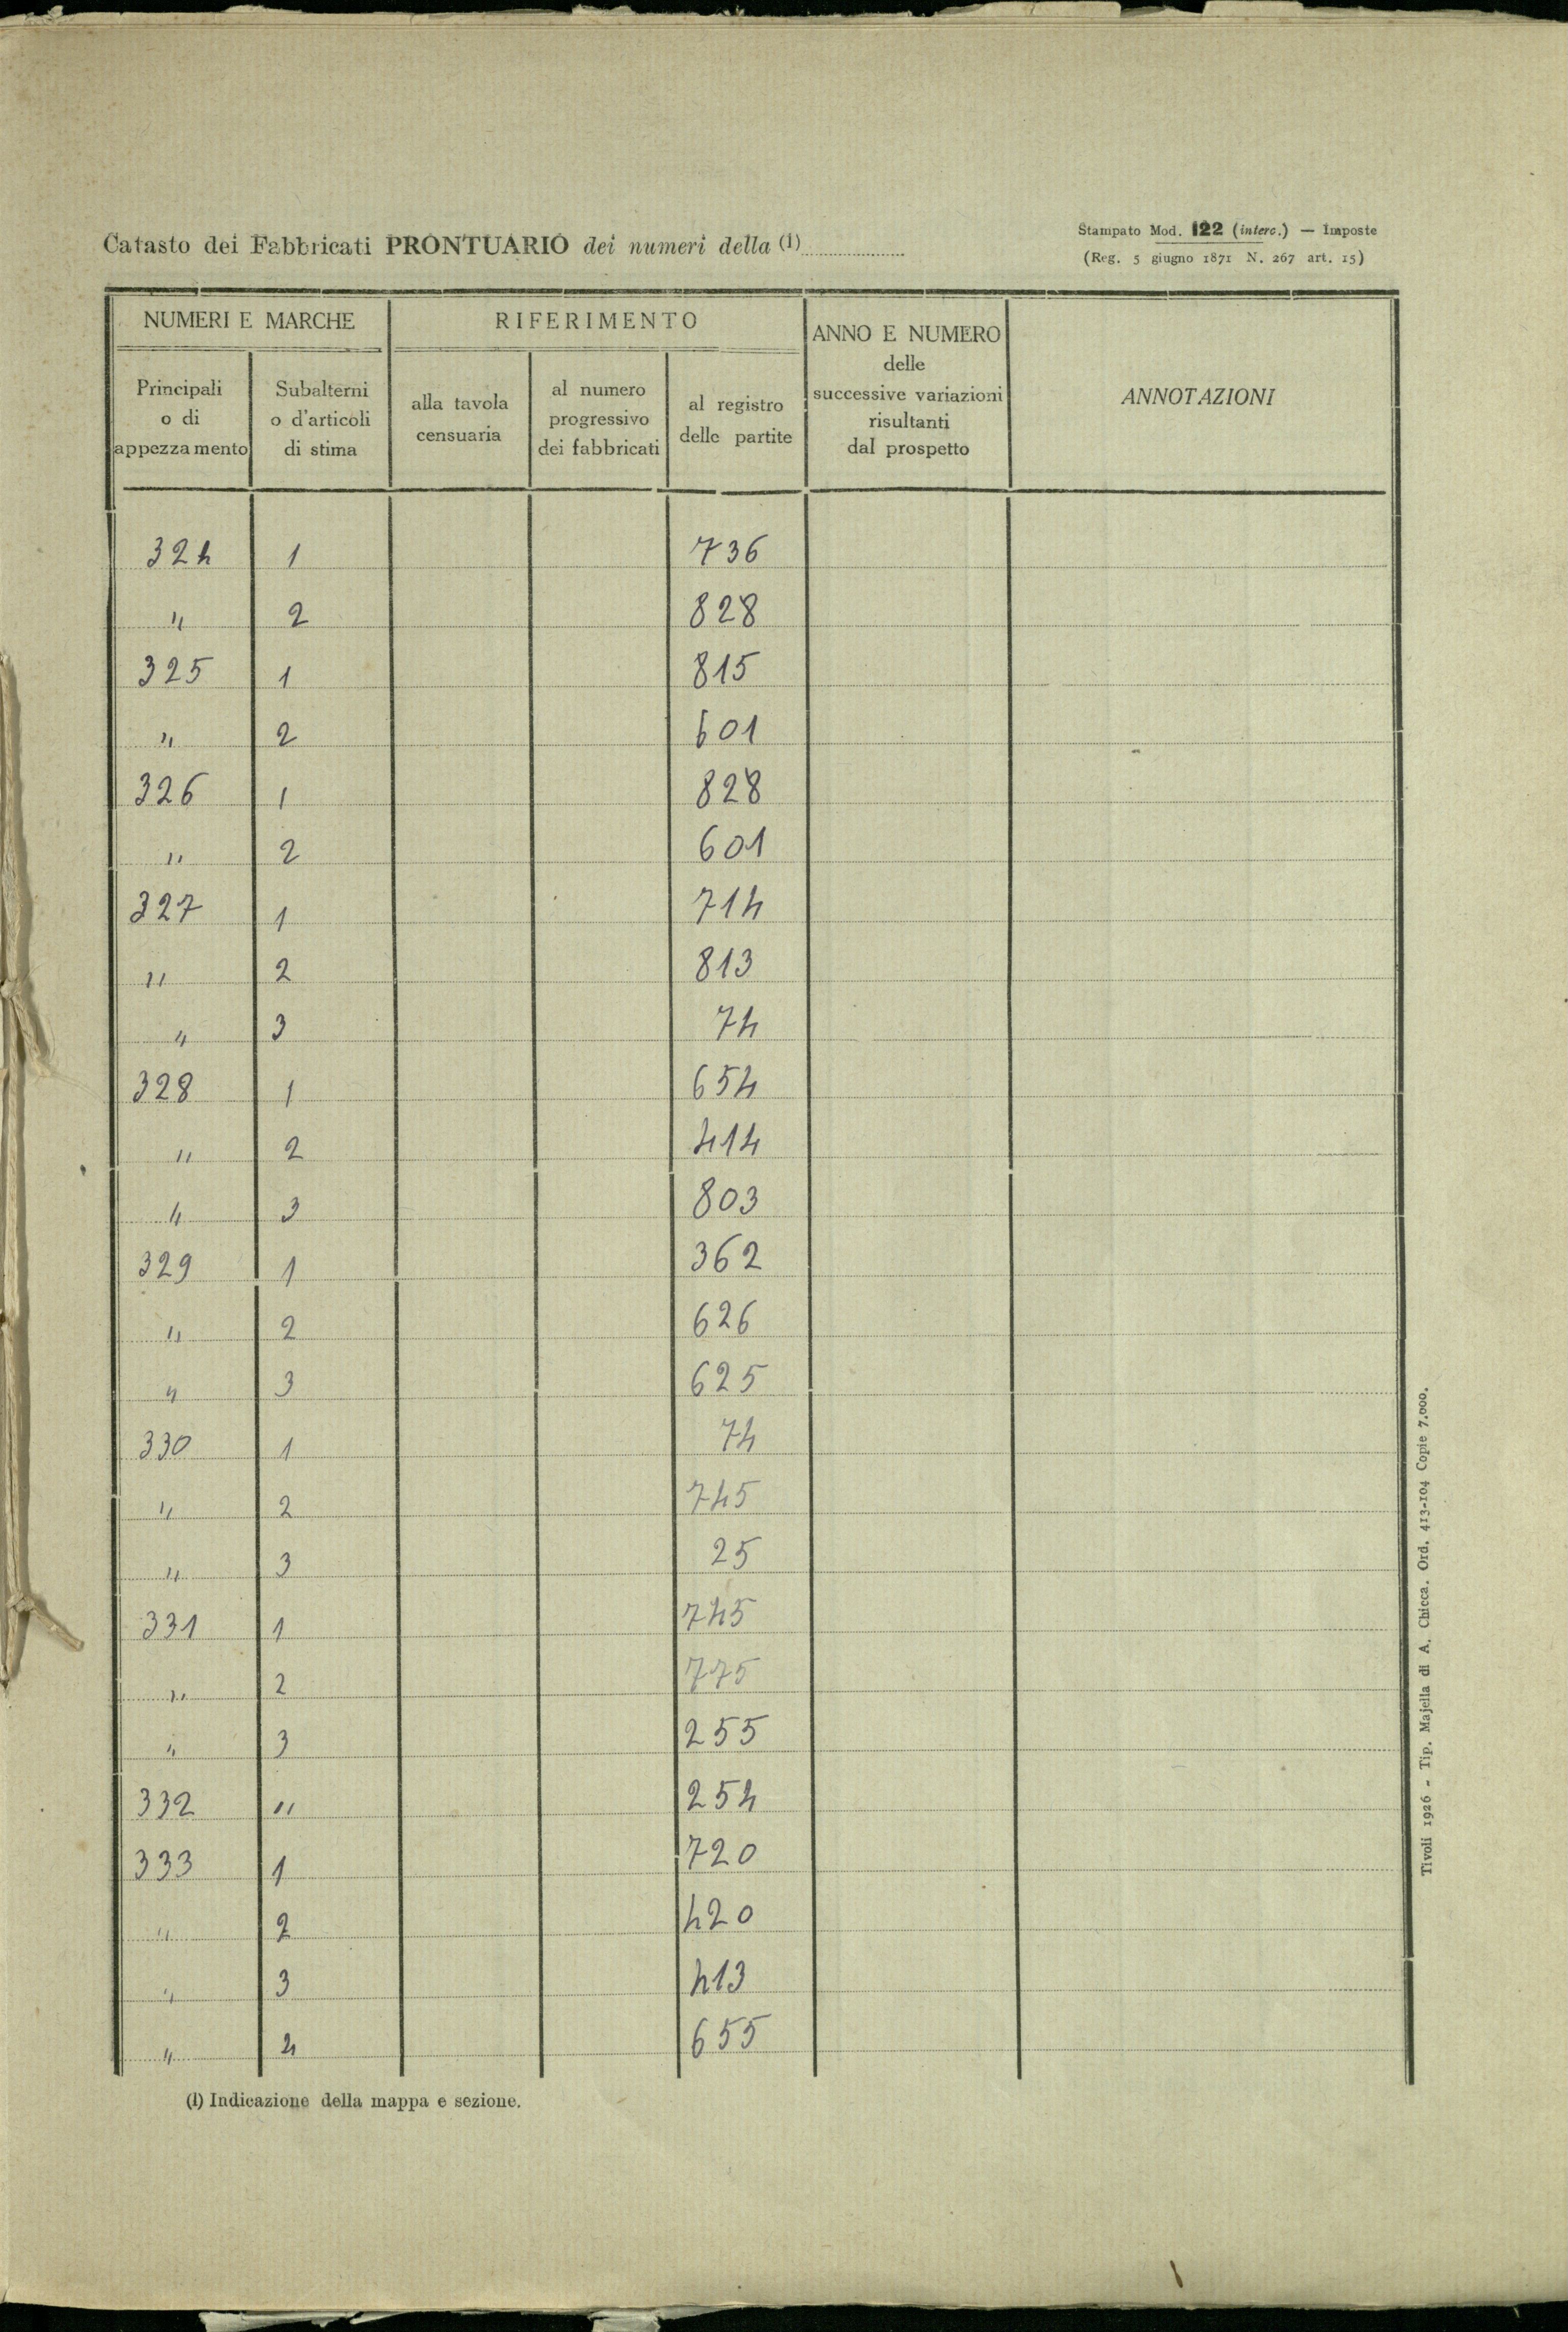 Catasto dei Fabbricati PRONTUARIO dei numeri della (1)
Stampato Mod. 122 (interc.) — Imposte
(Reg. 5 giugno 1871 N. 267 art. 15)
NUMERI E MARCHE
RIFERIMENTO
ANNO E NUMERO
delle
successive variazioni
risultanti
dal prospetto
ANNOTAZIONI
Principali
o di
appezzamento
Subalterni
o d'articoli
di stima
alla tavola
censuaria
al numero
progressivo
dei fabbricati
al registro
delle partite
324 1 736
" 2 828
325 1 815
" 2 601
326 1 828
" 2 601
327 1 714
" 2 813
" 3 74
328 1 654
" 2 414
" 3 803
329 1 362
" 2 626
" 3 625
330 1 74
" 2 745
" 3 25
331 1 745
" 2 775
" 3 255
332 " 254
333 1 720
" 2 420
" 3 413
" 4 655
(1) Indicazione della mappa e sezione.
Tivoli 1926 - Tip. Majella di A. Chicca. Ord. 413-104 Copie 7.000.